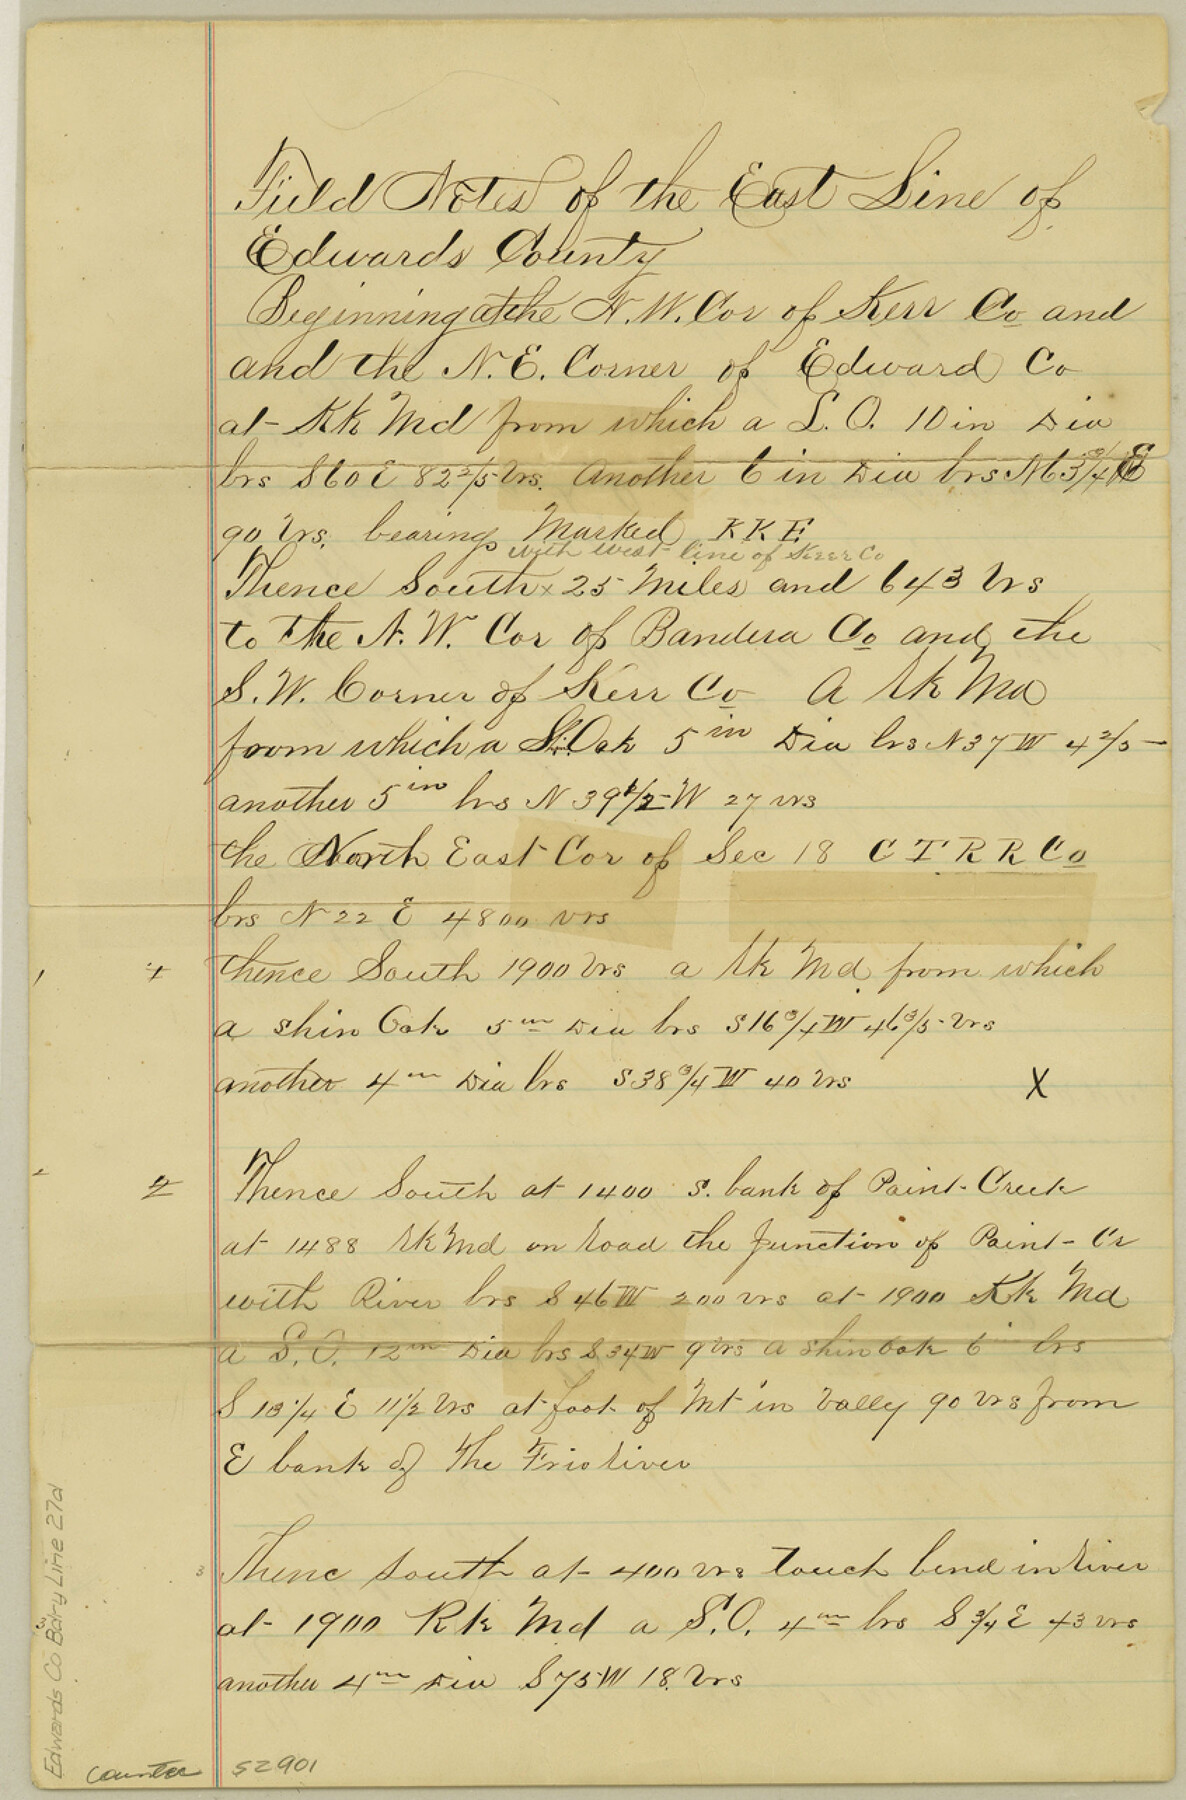 Field Notes of the East Line of
Edwards County
Beginning at the N.W. Cor of Kerr Co and
and the N.E. Corner of Edward Co
at Rk Md from which a L.O. 10 in Dia
brs S 60 E 82 2/5 vrs. Another 6 in Dia brs N 63 3/4 E
90 vrs. bearings Marked K K E
with west line of Kerr Co
Thence South x 25 Miles and 643 vrs
to the N.W. Cor of Bandera Co and the
S.W. Corner of Kerr Co A Rk Md
from which a S. Oak 5 in Dia brs N 37 W 4 2/5
another 5 in brs N 39 1/2 W 27 vrs
the North East Cor of Sec 18 C T R R Co
brs N 22 E 4800 vrs
1 1 thence South 1900 vrs a Rk Md from which
a shin Oak 5 in Dia brs S 16 3/4 W 46 3/5 vrs
another 4 in Dia brs S 38 3/4 W 40 vrs X
2 Thence South at 1400 S. bank of Paint Creek
at 1488 Rk Md on Road the Junction of Paint Cr
with River brs S 46 W 200 vrs at 1900 Rk Md
a S.O. 12 in Dia brs S 34 W 9 vrs a shin oak 6" brs
S 13 1/4 E 11 1/2 vrs at foot of Mt in vally 90 vrs from
E bank of the Frio River
3 Thenc South at 400 vrs touch bend in River
at 1900 Rk Md a S.O. 4 in brs S 3/4 E 43 vrs
another 4 in Dia S 75 W 18. vrs
Edwards Co Bdry Line 27d
counter 52901